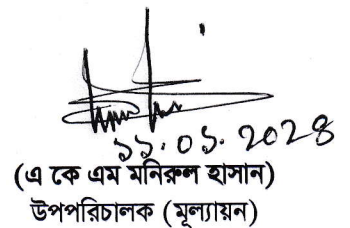 ১১.০১.২০২৪
(এ কে এম মনিরুল হাসান)
উপপরিচালক (মূল্যায়ন)